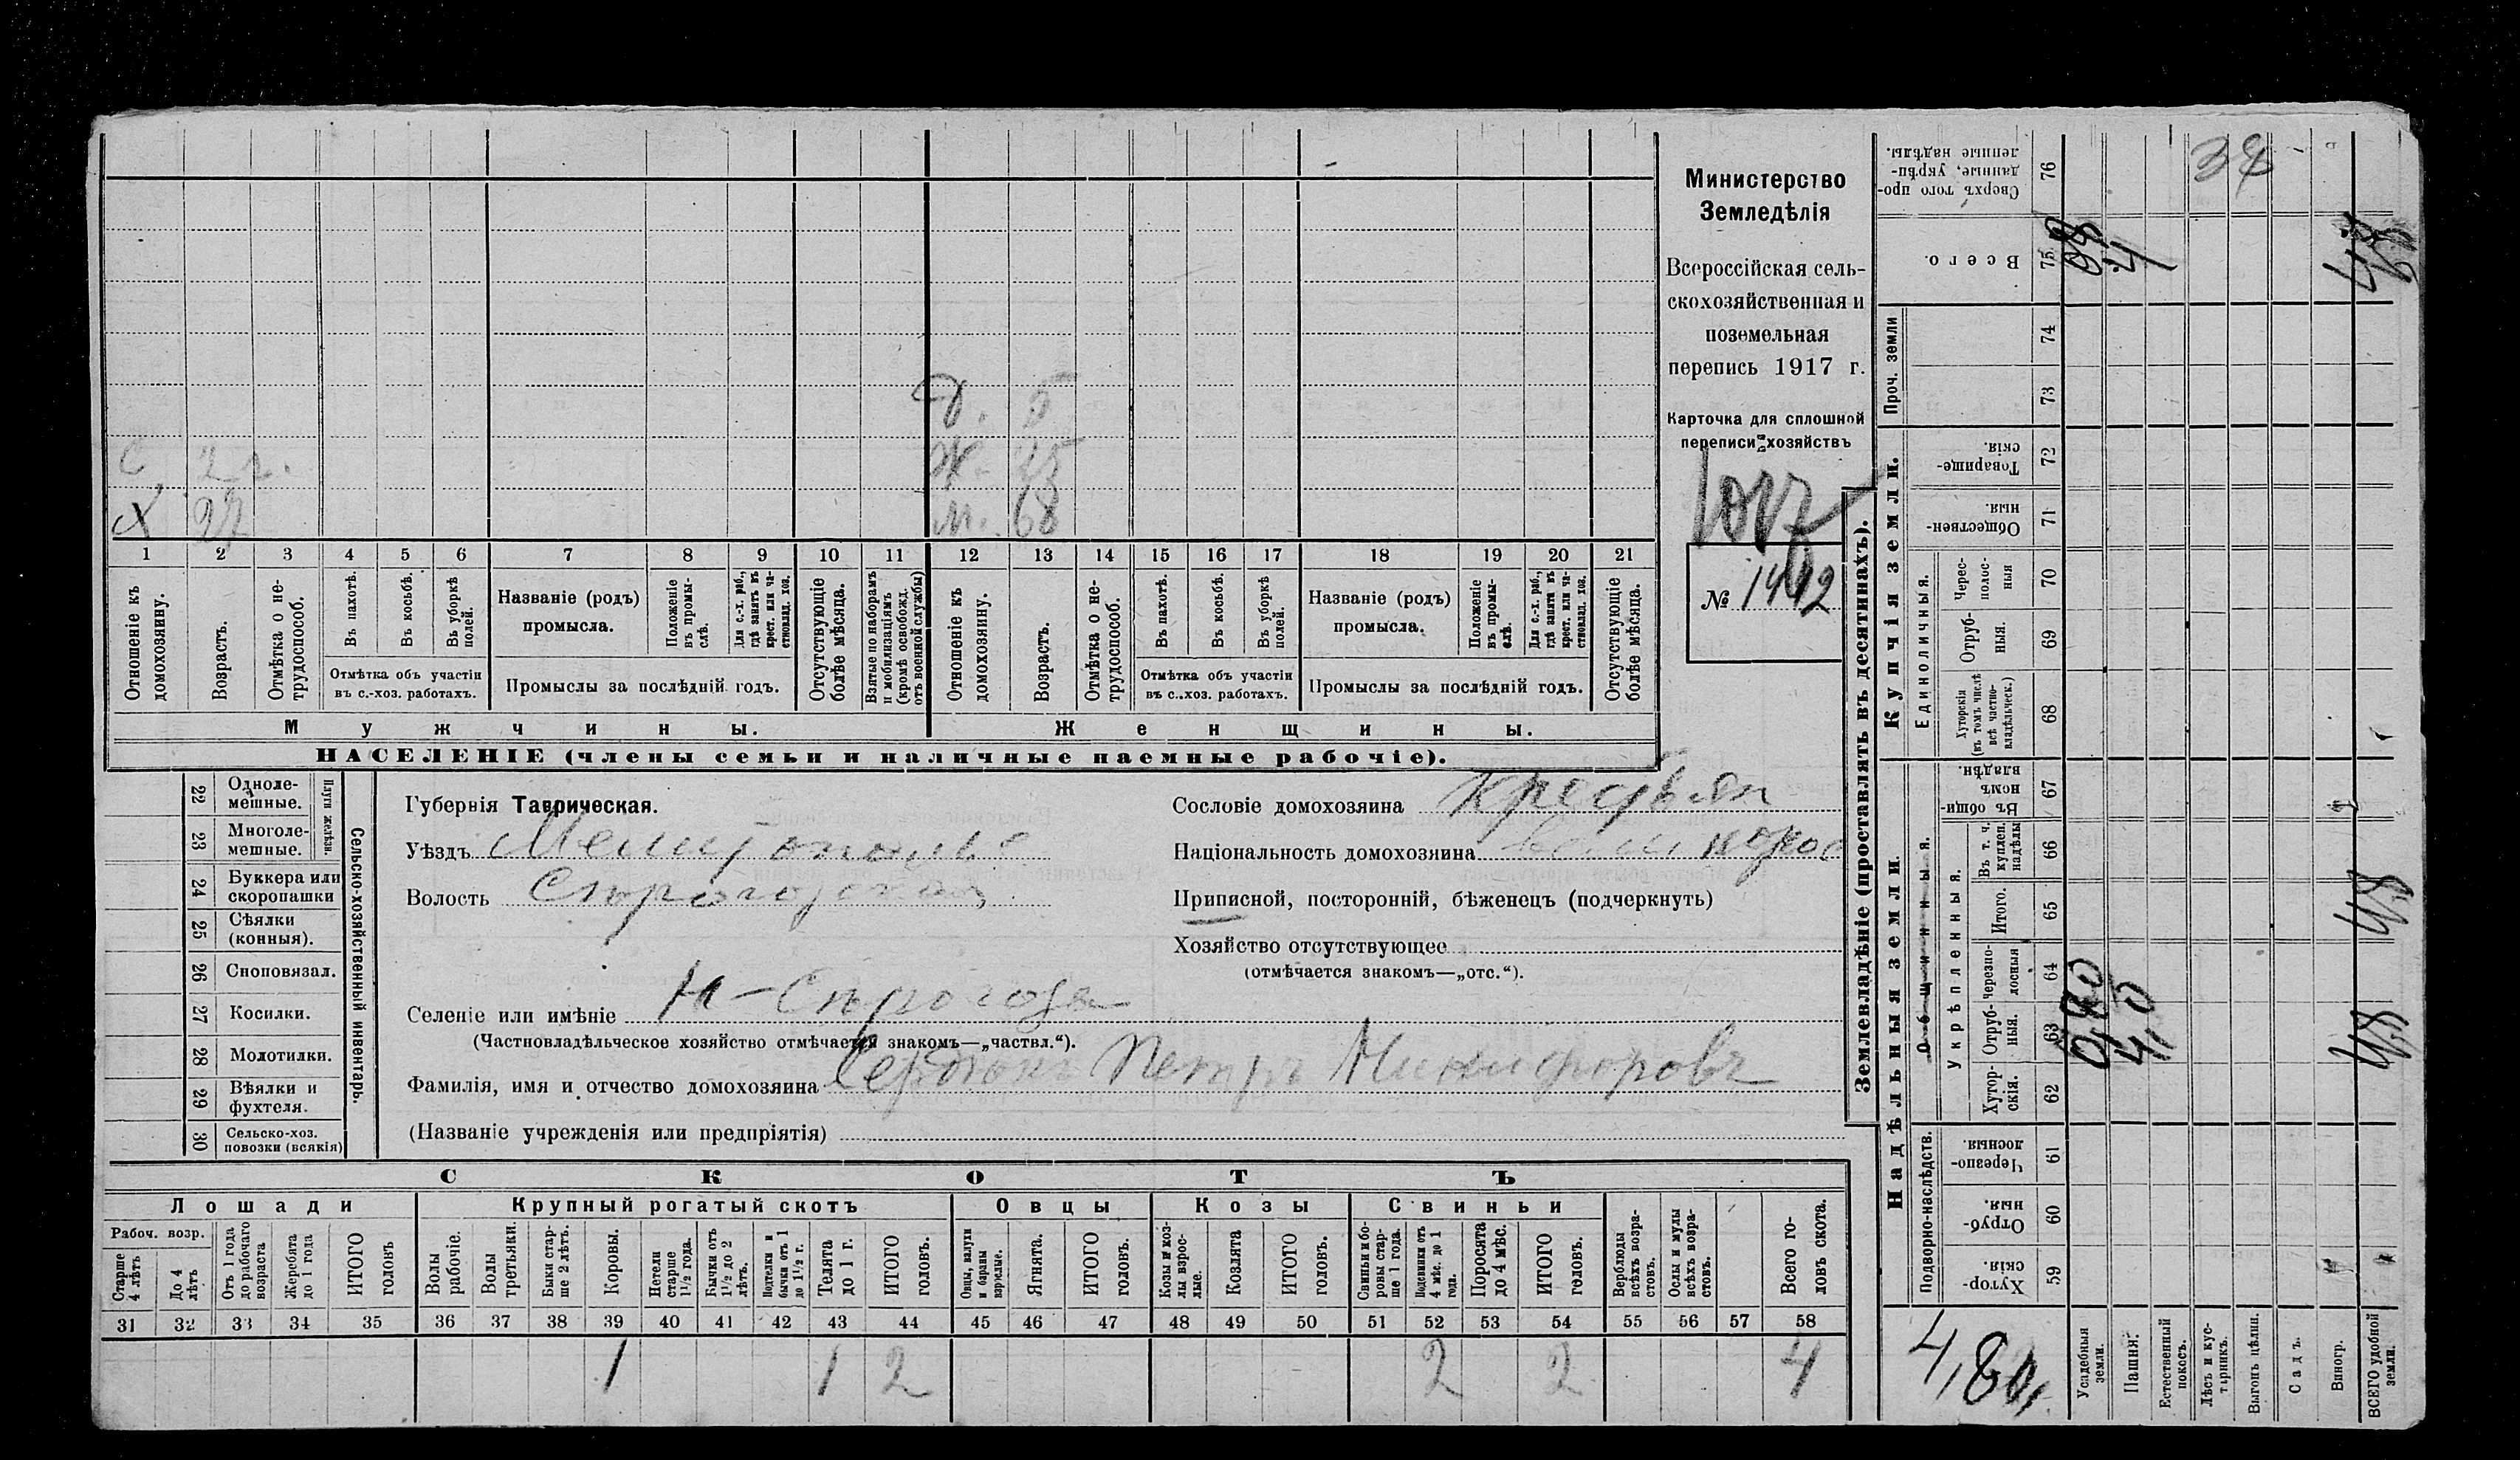 Министерство
Земледѣлія
Всероссійская сель-
скохозяйственная и
поземельная
перепись 1917 г.
Карточка для сплошной
переписи хозяйствъ
№ 1442
Д. 5
С 2 г. Ж. 25
Х 27 М. 68
1 2 3 4 5 6 7 8 9 10 11 12 13 14 15 16 17 18 19 20 21
Отношеніе къ домохозяину.
Возрастъ.
Отмѣтка о не-трудоспособ.
Въ пахотѣ.
Въ косьбѣ.
Въ уборкѣ полей.
Отмѣтка объ участіи
въ с.-хоз. работахъ.
Названіе (родъ)
промысла.
Положеніе въ промы-слѣ.
Для с.-х. раб., гдѣ занятъ въ крест. или ча-стновлад. хоз.
Промыслы за послѣдній годъ.
Отсутствующіе болѣе мѣсяца.
Взятые по наборамъ и мобилизаціямъ (кромѣ освобожд. отъ военной службы)
Отношеніе къ домохозяину.
Возрастъ.
Отмѣтка о не-трудоспособ.
Въ пахотѣ.
Въ косьбѣ.
Въ уборкѣ полей.
Отмѣтка объ участіи
въ с.-хоз. работахъ.
Названіе (родъ)
промысла.
Положеніе въ промы-слѣ.
Для с.-х. раб., гдѣ занята въ крест. или ча-стновлад. хоз.
Промыслы за послѣдній годъ.
Отсутствующіе болѣе мѣсяца.
Мужчины. Женщины.
НАСЕЛЕНІЕ (члены семьи и наличные наемные рабочіе).
22 Одноле-мешные.
23 Многоле-мешные.
Плуги желѣзн.
24 Буккера или скоропашки
25 Сѣялки (конныя).
26 Сноповязал.
27 Косилки.
28 Молотилки.
29 Вѣялки и фухтеля.
30 Сельско-хоз. повозки (всякія)
Сельско-хозяйственный инвентарь.
Губернія Таврическая.
Уѣздъ Мелитопольс
Волость Строгоровская
Селеніе или имѣніе Н-Строгозы
(Частновладѣльческое хозяйство отмѣчается знакомъ—„частвл.“).
Фамилія, имя и отчество домохозяина Петръ Никифоровъ
(Названіе учрежденія или предпріятія)
Сословіе домохозяина Крестьян
Національность домохозяина
Приписной, посторонній, бѣженецъ (подчеркнуть)
Хозяйство отсутствующее
(отмѣчается знакомъ—„отс.“).
СКОТЪ
Лошади Крупный рогатый скотъ Овцы Козы Свиньи
Рабоч. возр.
Старше 4 лѣтъ
До 4 лѣтъ
Отъ 1 года до рабочаго возраста
Жеребята до 1 года
ИТОГО головъ
Волы рабочіе.
Волы третьяки.
Быки стар-ше 2 лѣтъ.
Коровы.
Нетели старше 1½ года.
Бычки отъ 1½ до 2 лѣтъ.
Подтелки и бычки отъ 1 до 1½ г.
Телята до 1 г.
ИТОГО головъ.
Овцы, валухи и бараны взрослые.
Ягнята.
ИТОГО головъ.
Козы и коз-лы взрос-лые.
Козлята
ИТОГО головъ.
Свиньи и бо-ровы стар-ше 1 года.
Подсвинки отъ 4 мѣс. до 1 года.
Поросята до 4 мѣс.
ИТОГО головъ.
Верблюды всѣхъ возра-стовъ.
Ослы и мулы всѣхъ возра-стовъ.
Всего го-ловъ скота.
31 32 33 34 35 36 37 38 39 40 41 42 43 44 45 46 47 48 49 50 51 52 53 54 55 56 57 58
1 1 2 2 2 4
Землевладѣніе (проставлять въ десятинахъ).
Купчія земли.
Надѣльныя земли.
Сверхъ того про-данные, укрѣп-ленные надѣлы. 76
Всего. 75
Проч. земли 74 73
Товарище-скія. 72
Обществен-ныя. 71
Единоличныя.
Черес-полос-ныя 70
Отруб-ныя. 69
Хуторскія (въ томъ числѣ всѣ частно-владѣльческ.) 68
Общинныя.
Въ общи-номъ владѣн. 67
Укрѣпленныя.
Въ т. ч. куплен. надѣлы 66
Итого. 65
Черезпо-лосныя 64
Отруб-ныя. 63
Хутор-скія. 62
Подворно-наслѣдств.
Черезпо-лосныя. 61
Отруб-ныя. 60
Хутор-скія. 59
Усадебныя земли.
Пашня.
Естественный покосъ.
Лѣсъ и кус-тарникъ.
Выгонъ цѣлин.
Садъ.
Виногр.
ВСЕГО удобной земли.
34
0,80
4,0
48
48
4,80